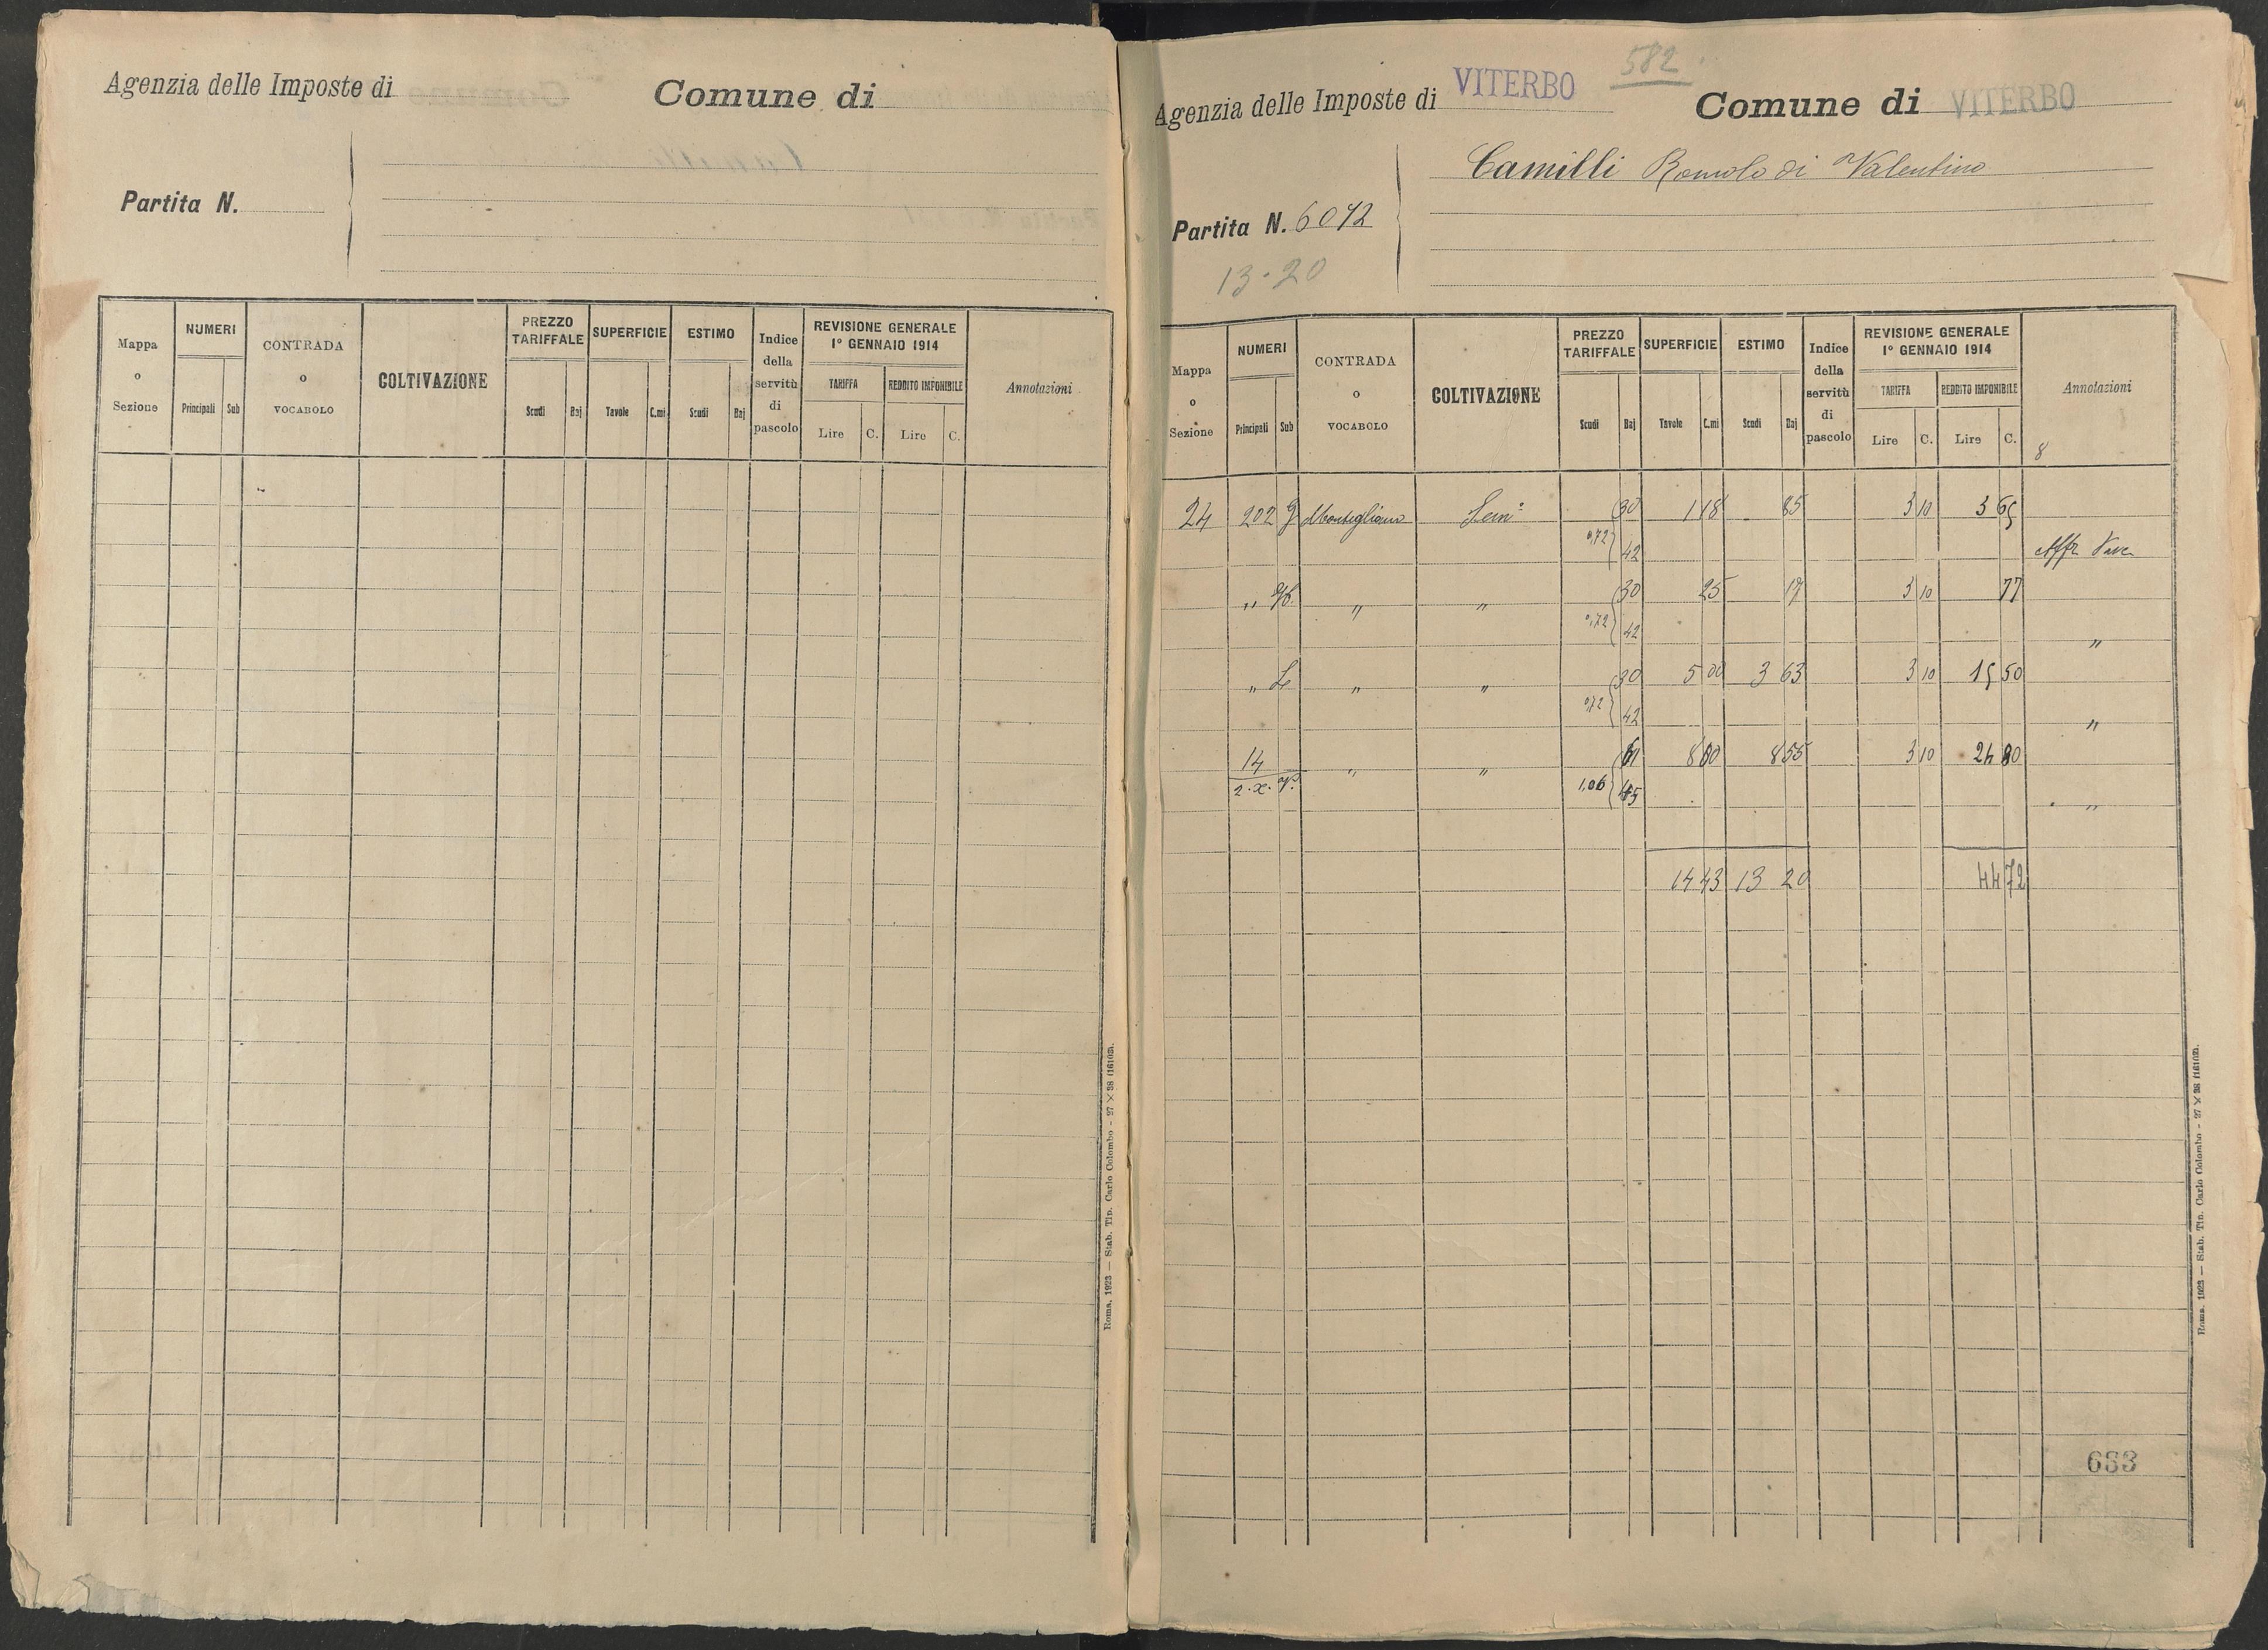 Agenzia delle Imposte di
Comune di
Partita N.
Mappa o Sezione
NUMERI
Principali Sub
CONTRADA o VOCABOLO
COLTIVAZIONE
PREZZO TARIFFALE
Scudi Baj
SUPERFICIE
Tavole C.mi
ESTIMO
Scudi Baj
Indice della servitù di pascolo
REVISIONE GENERALE
1° GENNAIO 1914
TARIFFA REDDITO IMPONIBILE
Lire C. Lire C.
Annotazioni
Roma, 1923 — Stab. Tip. Carlo Colombo - 27 × 38 (16102).
582
Agenzia delle Imposte di VITERBO
Comune di VITERBO
Camilli Romolo di Valentino
Partita N. 6072
13.20
Mappa o Sezione
NUMERI
Principali Sub
CONTRADA o VOCABOLO
COLTIVAZIONE
PREZZO TARIFFALE
Scudi Baj
SUPERFICIE
Tavole C.mi
ESTIMO
Scudi Baj
Indice della servitù di pascolo
REVISIONE GENERALE
1° GENNAIO 1914
TARIFFA REDDITO IMPONIBILE
Lire C. Lire C.
Annotazioni
8
24 202 Montigliano Sem° 30 1 18 85 3 10 3 65
0,72 42
" " " 30 25 17 3 10 77
0,72 42 "
" " " 30 5 00 3 63 3 10 15 50
0,72 42 "
14 " " 61 8 00 8 55 3 10 24 80
1,06 45 "
14 43 13 20 44 72
683
Roma, 1923 — Stab. Tip. Carlo Colombo - 27 × 38 (16102).